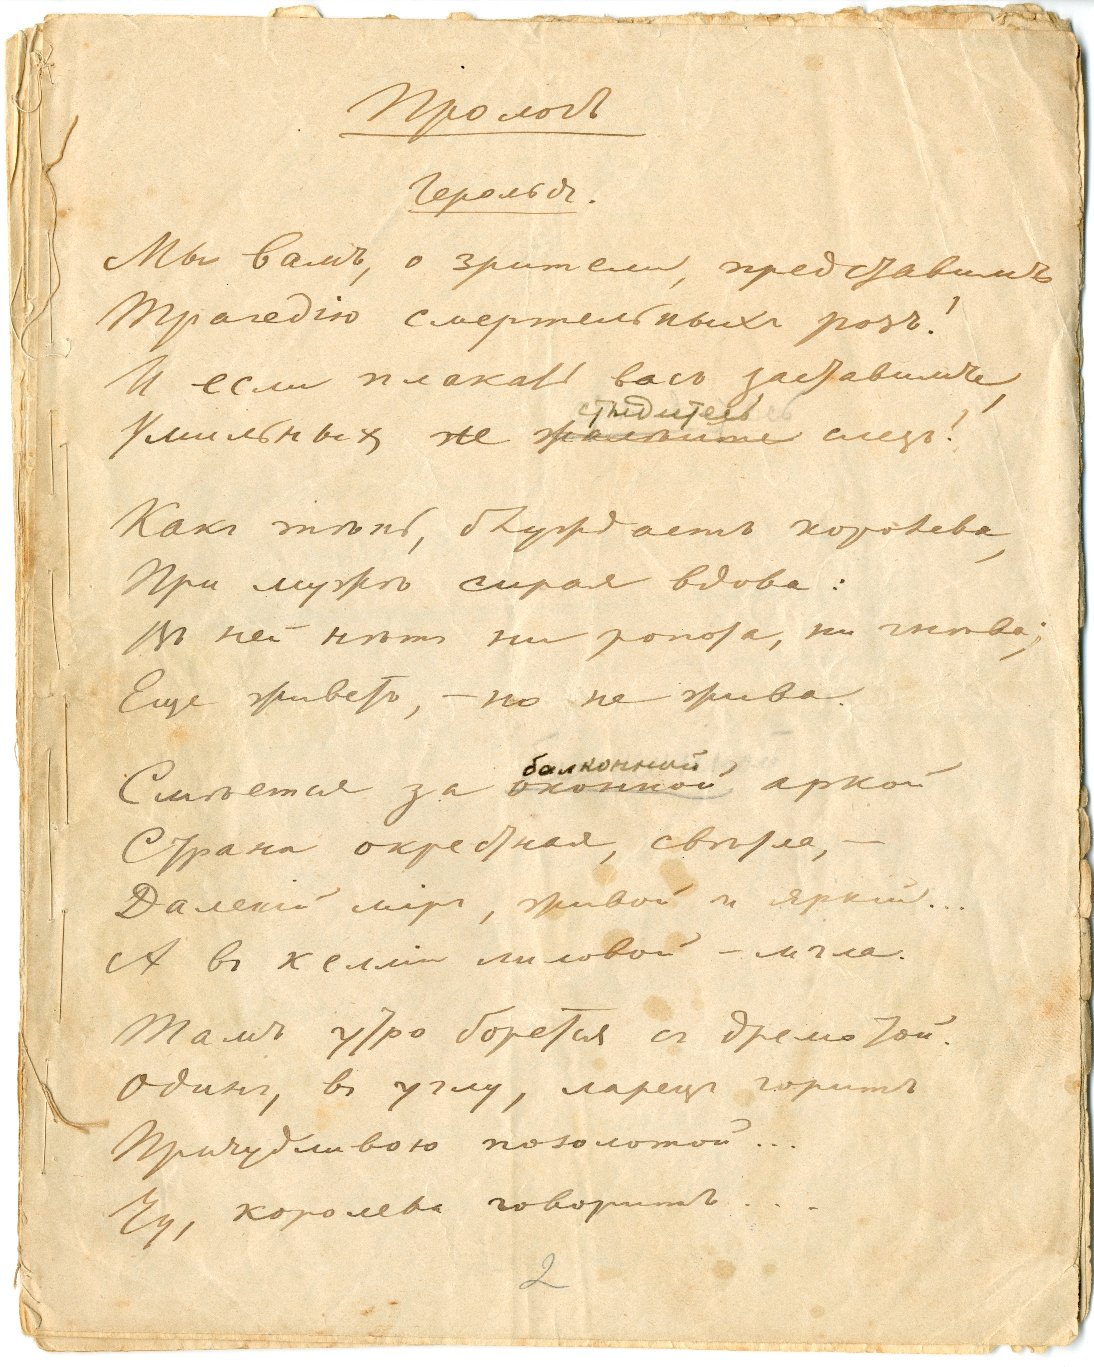 Прологъ
Герольдъ.
Мы вамъ, о зрители, представимъ
Трагедію смертельныхъ розъ!
И если плакать васъ заставимъ,
стыдитесь
Умильныхъ не жалѣйте слезъ!
Какъ тѣнь, блуждаетъ королева,
При мужѣ сирая вдова:
Въ ней нѣтъ ни ропота, ни гнѣва;
Еще живетъ, – но не жива.
балконной
Смѣется за оконной аркой
Страна окрестная, свѣтла, –
Далекій міръ, живой и яркій...
А въ келліи лиловой – мгла.
Тамъ утро борется съ дремотой.
Одинъ, въ углу, ларецъ горитъ
Причудливою позолотой...
Чу, королева говоритъ....
2